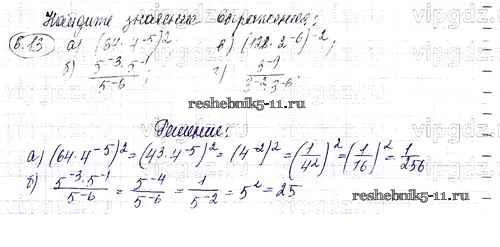 Найдите значения выражения:
6.13 а) (64·4⁻⁵)²   в) (128·2⁻⁶)⁻²;
б) 5⁻³·5⁻¹/5⁻⁶;   г) 3⁻⁹/3⁻²·3⁻⁶.
reshebnik5-11.ru
Решение:
а) (64·4⁻⁵)² = (43·4⁻⁵)² = (4⁻²)² = (1/42)² = (1/16)² = 1/256
б) 5⁻³·5⁻¹/5⁻⁶ = 5⁻⁴/5⁻⁶ = 1/5⁻² = 5² = 25
reshebnik5-11.ru